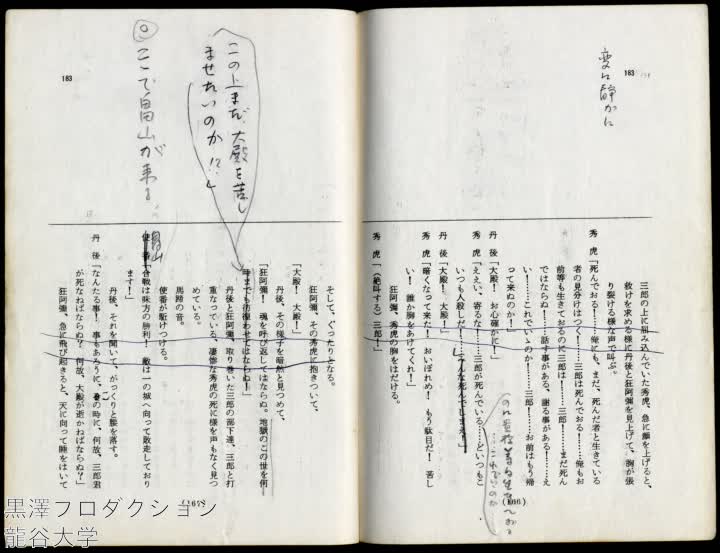 変に静かに
183
三郎の上に屈み込んでいた秀虎、急に顔を上げると、
救けを求める様に丹後と狂阿彌を見上げて、胸が張
り裂ける様な声で叫ぶ。
秀 虎「死んでおる!……俺にも、まだ、死んだ者と生きている
者の見分けはつく!……三郎は死んでおる!……俺もお
前等も生きておるのに三郎は!……三郎!……まだ死ん
ではならぬ!……話す事がある、謝る事がある!……え
い!……これでいゝのか!……三郎!……お前はもう帰
って来ぬのか!」
丹 後「大殿! お心確かに!」
秀 虎「ええい、寄るな!……三郎が死んでいる……どいつもこ
いつも人殺しだ!……みんな死んでしまえ!」
丹 後「大殿! 大殿!」
秀 虎「暗くなって来た! おいぼれめ! もう駄目だ! 苦し
い! 誰か胸をあけてくれ!」
狂阿彌、秀虎の胸をはだける。
秀 虎「(絶叫する)三郎!」
(166)
183
この上まだ、大殿を苦し
ませたいのか!?」
◎ここで畠山が来る
そして、ぐったりとなる。
狂阿彌、その秀虎に抱きついて、
「大殿! 大殿!」
丹後、その様子を暗然と見つめて、
「狂阿彌! 魂を呼び返してはならぬ。地獄のこの世を何
時までも彷徨わせてはならぬ!」
丹後と狂阿彌、取り巻いた三郎の部下達、三郎と打
重なっている、凄惨な秀虎の死に様を声もなく見つ
めている。
馬蹄の音。
使番が駆けつける。
畠山
使 番「合戦は味方の勝利! 敵は一の城へ向って敗走しており
ます!」
丹後、それを聞いて、がっくりと膝を落す。
丹 後「なんたる事! 事もあろうに、この時に、何故、三郎君
が死なねばならぬ? 何故、大殿が逝かねばならぬ?」
狂阿彌、急に飛び起きると、天に向って唾をはいて
(167)
黒澤プロダクション
龍谷大学